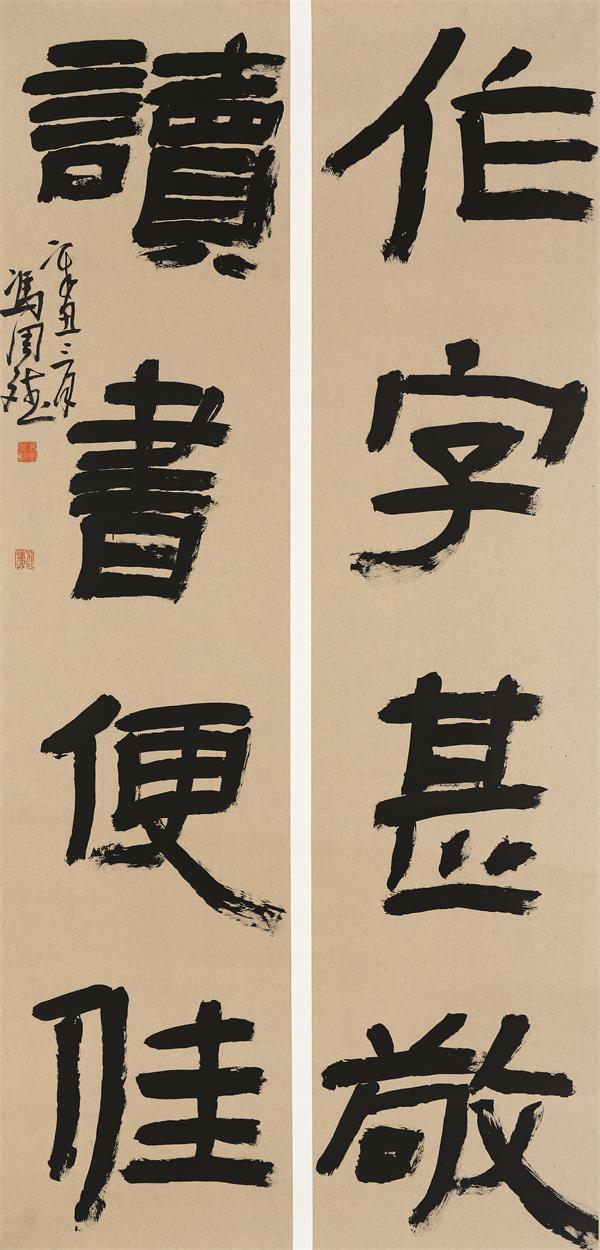 作字甚敬
讀書便佳
辛丑三月
馮